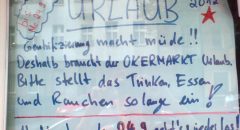 URLAUB 2012
Gentrifizierung macht müde!!
Deshalb braucht der ÖKERMARKT Urlaub.
Bitte stellt das Trinken, Essen
und Rauchen so lange ein!